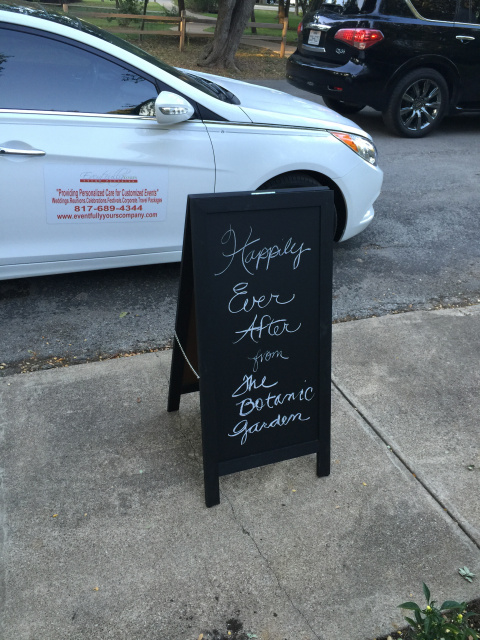 "Providing Personalized Care for Customized Events"
Weddings Reunions Celebrations Festivals Corporate Travel Packages
817-689-4344
www.eventfullyyourscompany.com
Happily
Ever
After
from
The
Botanic
Garden